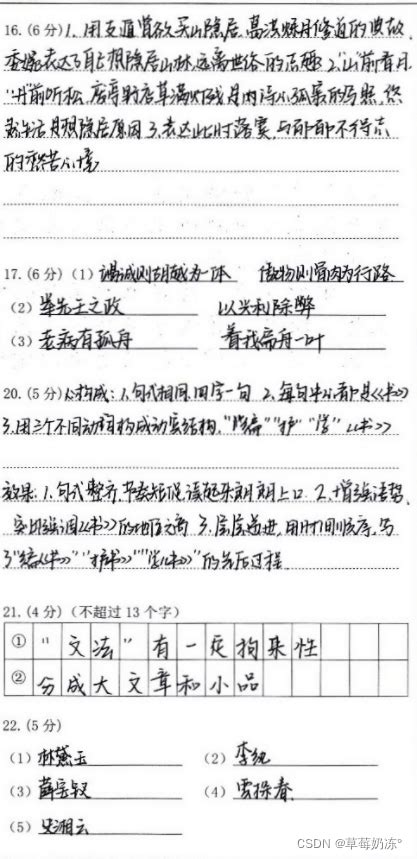 16.(6分)1.用支遁曾欲买山隐居,高洁 修道的典故,
委婉表达了自己想隐居山林,远离世俗的志趣 2."山前看月
"" 前听松,房 草满 残月 诗人孤寂的
是想隐居原因 3.表达此时落寞,与郁郁不得志
的愁苦心境
17.(6分)(1)竭诚则胡越为一体 傲物则骨肉为行路
(2)举先王之政 以兴利除弊
(3)老病有孤舟 着我扁舟一叶
20.(5分)从构成:1.句式相同,四字一句 2.每句中心 是《书》
3.用三个不同动词构成动宾结构," ""护""学"《书》
效果:1.句式整齐,节奏 ,读起来朗朗上口 2.增强语势,
突出强调《书》的地位之高 3.层层递进,用时间顺序,写
了" 《书》""护书》""学《书》"的先后过程
21.(4分)(不超过13个字)
① "文法"有一定拘束性
② 分成大文章和小品
22.(5分)
(1)林黛玉 (2)李纨
(3)薛宝钗 (4)贾探春
(5)史湘云
CSDN @草莓奶冻°